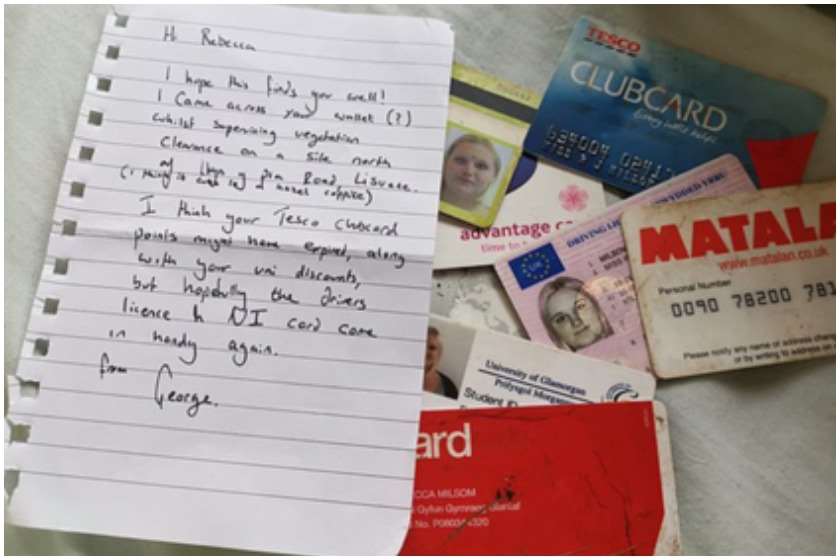 Hi Rebecca
I hope this finds you well!
I came across your wallet (?)
whilst supervising vegetation
clearance on a site north
of Road Lisvane.
I think your Tesco Clubcard
points might have expired, along
with your uni discounts,
but hopefully the drivers
licence & NI card come
in handy again.
from George.
TESCO
CLUBCARD
every little helps
advantage
time to
DRIVING
UK
MATALA
www.matalan.co.uk
Personal Number
0090 78200 781
Please notify any name or address
or by writing to address on
University of Glamorgan
Prifysgol Morgan
Student ID
ard
CCA MILSOM